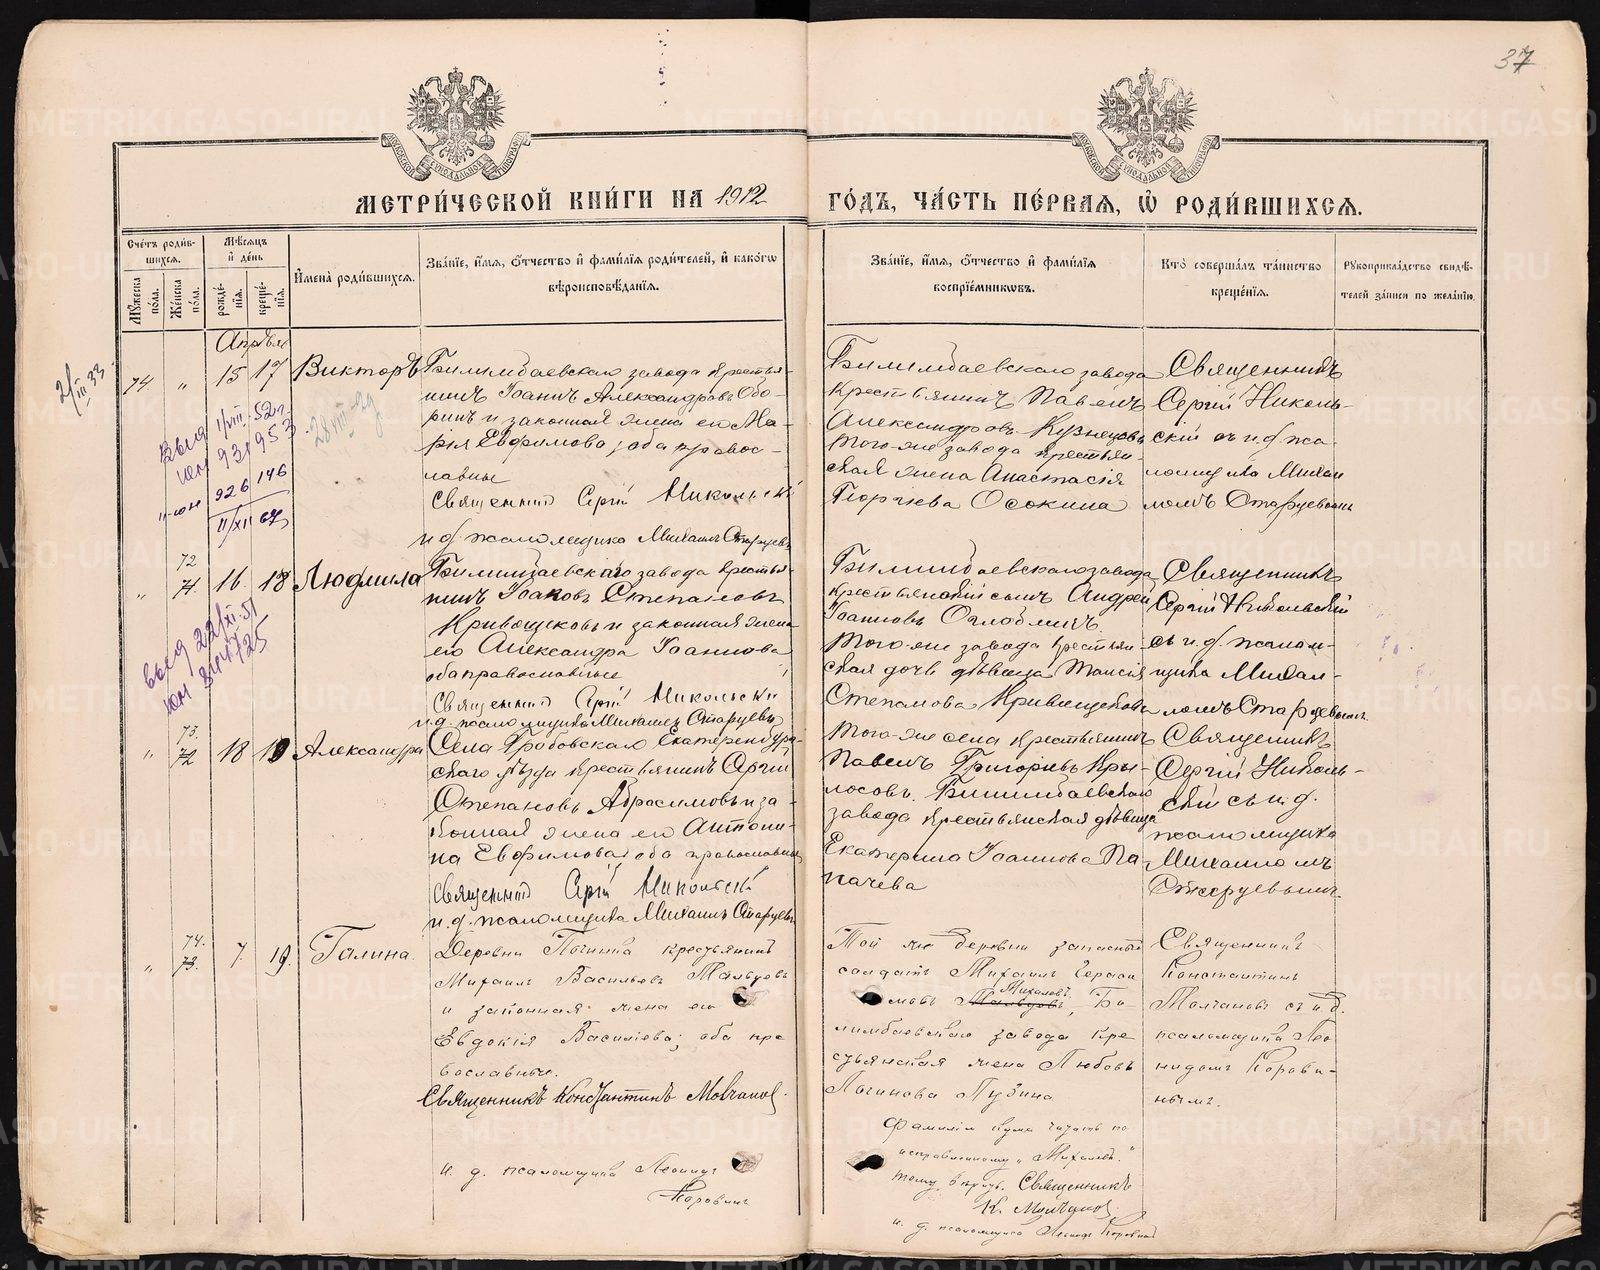 37
МЕТРИ́ЧЕСКОЙ КНИ́ГИ НА 1912
ГО́ДЪ, ЧА́СТЬ ПЕ́РВАѦ, Ѡ҆ РОДИ́ВШИХСѦ.
Сче́тъ роди́в-
шихсѧ.
Мꙋ́жеска по́ла.
Же́нска по́ла.
Мѣ́сѧцъ и҆ де́нь
рожде́-
нїѧ.
креще́-
нїѧ.
И҆мена̀ роди́вшихсѧ.
Зва́нїе, и҆́мѧ, ѻ҆́тчество и҆ фами́лїѧ роди́телей, и҆ како́гѡ
вѣроисповѣ́данїѧ.
Зва́нїе, и҆́мѧ, ѻ҆́тчество и҆ фами́лїѧ
воспрїе́мникѡвъ.
Кто̀ соверша́лъ та́инство
креще́нїѧ.
Рꙋкоприкла́дство свидѣ́-
телей за́писи по жела́нїю.
Апрѣля
74 " 15 17 Викторъ
Билимбаевскаго завода крестья-
нинъ Іоаннъ Александровъ Обо-
ринъ и законная жена его Ма-
рія Евфимова; оба правос-
лавные
Священникъ Сергій Никольскій
и. д. псаломщика Михаилъ Старцевъ
Билимбаевскаго завода
крестьянинъ Павелъ
Александровъ Кузнецовъ
того-же завода крестьян-
ская жена Анастасія
Георгіева Осокина
Священникъ
Сергій Николь-
скій съ и. д. пса-
ломщика Михаи-
ломъ Старцевымъ
21/III 33
выд 1/VIII-52г.
юн 931953
28/VIII-29
926 146
II-юн
11/XII 67
72
" 71 16 18 Людмила
Билимбаевскаго завода крестья-
нинъ Іаковъ Степановъ
Кривощековъ и законная жена
его Александра Іоаннова
оба православные
Священникъ Сергій Никольскій
и. д. псаломщика Михаилъ Старцевъ
Билимбаевскаго завода
крестьянскій сынъ Андрей
Іоанновъ Оглоблинъ
того-же завода крестьян-
ская дочь дѣвица Таисія
Степанова Кривощекова
Священникъ
Сергій Никольскій
съ и. д. псалом-
щика Михаи-
ломъ Старцевымъ
выд 22/XI-51
73.
" 72 18 19 Александра
Села Грабовскаго Екатеринбург-
скаго уѣзда крестьянинъ Сергій
Степановъ Абросимовъ и за-
конная жена его Антони-
на Евфимова; оба православные
Священникъ Сергій Никольскій
и. д. псаломщика Михаилъ Старцевъ
Того-же села крестьянинъ
Павелъ Григорьевъ Кры-
лосовъ. Билимбаевскаго
завода крестьянская дѣвица
Екатерина Іоаннова Па-
пачева
Священникъ
Сергій Николь-
скій съ и. д.
псаломщика
Михаиломъ
Старцевымъ
74.
" 73. 7. 19. Галина.
Деревни Починка крестьянинъ
Михаилъ Васильевъ Мальцовъ
и законная жена его
Евдокія Василіева; оба пра-
вославные.
Священникъ Константинъ Молчановъ.
и. д. псаломщика Леонидъ
Коровинъ
Той же деревни запасный
солдатъ Михаилъ Гераси-
Михалевъ
мовъ Мальцовъ, Би-
лимбаевскаго завода кре-
стьянская жена Любовь
Логинова Пузина
Фамилію кума читать по
исправленному „Михалевъ."
Тому вѣрны. Священникъ
К. Молчановъ
и. д. псаломщика Леонидъ Коровинъ
Священникъ
Константинъ
Молчановъ съ и. д.
псаломщика Лео-
нидомъ Корови-
нымъ.
METRIKI.GASO-URAL.RU